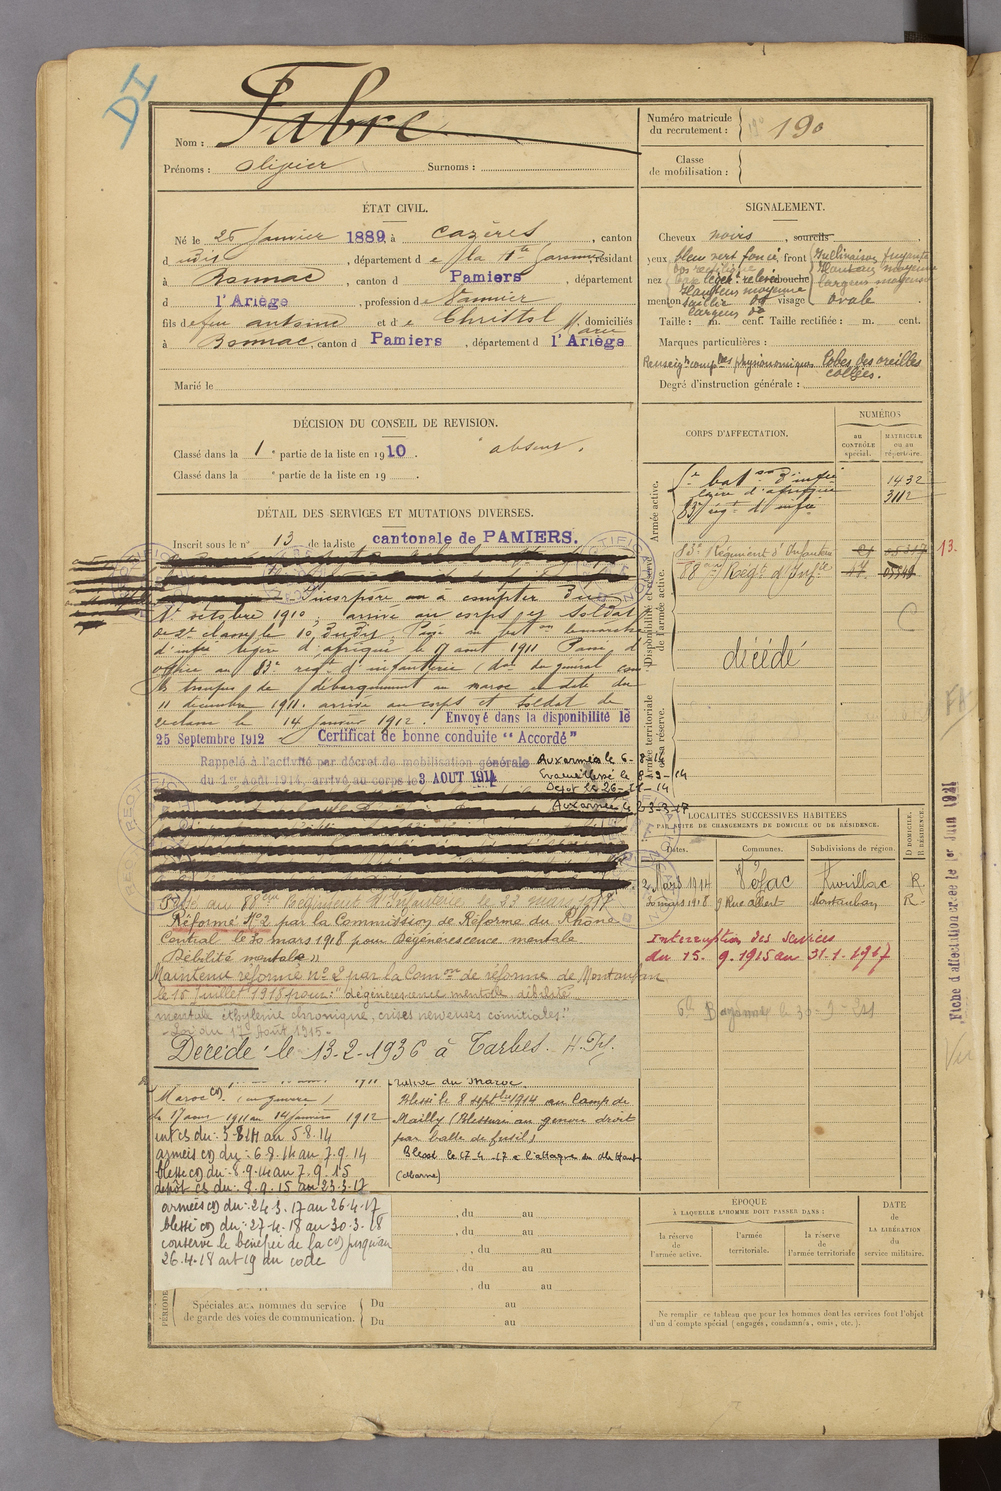 DI
Nom : Fabre
Prénoms : Olivier Surnoms :
Numéro matricule du recrutement : 190
Classe de mobilisation :
ÉTAT CIVIL.
Né le 25 Janvier 1889, à Cazères, canton
d udit, département de la Hte Garonne, résidant
à Bonnac, canton d Pamiers, département
d l'Ariège, profession de Vannier
fils de feu antoine et de Christol Marie, domiciliés
à Bonnac, canton d Pamiers, département d l'Ariège
Marié le
SIGNALEMENT.
Cheveux noirs, sourcils
yeux bleu vert foncé, front Inclinaison fuyante
Hauteur moyenne
largeur moyenne
nez dos rectiligne
base légt relevée bouche
Hauteur moyenne
saillie
largeur
menton visage ovale
Taille : m. cent. Taille rectifiée : m. cent.
Marques particulières :
Renseigts compres physionomiques Lobes des oreilles
collées.
Degré d'instruction générale :
DÉCISION DU CONSEIL DE REVISION.
Classé dans la 1 e partie de la liste en 1910. absent.
Classé dans la e partie de la liste en 19 .
CORPS D'AFFECTATION.
NUMÉROS
au CONTRÔLE spécial.
MATRICULE ou au répertoire.
Armée active.
baton d'infie
légère d'afrique 1432
83e régt d'infie 3112
Disponibilité et réserve de l'armée active.
83e Régiment d'Infanterie
13.
88eme Regt d'Infie
décédé
Armée territoriale et sa réserve.
DÉTAIL DES SERVICES ET MUTATIONS DIVERSES.
Inscrit sous le n° 13 de la liste cantonale de PAMIERS.
Incorporé à compter du
1er octobre 1910, arrivé au corps et soldat
de 2e classe le 10 dudit. Passé au baton de marche
d'infie légère d'afrique le 17 aout 1911 Passé d'
office au 83e regt d'infanterie (don du général comt
les troupes de débarquement au maroc en date du
11 decembre 1911. arrivé au corps et soldat de
2e classe le 14 Janvier 1912. Envoyé dans la disponibilité le
25 Septembre 1912 Certificat de bonne conduite "Accordé"
Rappelé à l'activité par décret de mobilisation générale
du 1er Août 1914, arrivé au corps le 3 AOUT 1914
Aux armées le 6-8-14
Evacué blessé le 8-9-14
Dépôt le 26-11-14
Aux armées le 23-3-17
Passé au 88eme Régiment d'Infanterie le 23 mars 1917
Réformé N°2 par la Commission de Réforme du Rhône
Central le 30 mars 1918 pour Dégénérescence mentale
Débilité mentale
Maintenu réformé n° 2 par la Comon de réforme de Montauban
le 15 Juillet 1918 pour : "dégénérescence mentale, débilité
mentale éthylisme chronique, crises nerveuses comitiales."
- Loi du 17 Août 1915 -
Décédé le 13-2-1936 à Tarbes. H. Py.
LOCALITÉS SUCCESSIVES HABITÉES
PAR SUITE DE CHANGEMENTS DE DOMICILE OU DE RÉSIDENCE.
Dates. Communes. Subdivisions de région. D DOMICILE. R RÉSIDENCE.
2 Mars 1914 Vézac Aurillac R.
30 mars 1918 9 Rue albert Montauban R.
Interruption des services
du 15. 9. 1915 au 31. 1. 1917
Bayonne le 30-9-
Fiche d'affectation créée le 1er Juin 1921
Maroc (en guerre)
du 17 aout 1911 au 14 janvier 1912
int cs du : 3-8-14 au 5-8-14
armées cs du : 6-8-14 au 7.9.14
blessé cs du : 8.9.14 au 7.9.15
dépôt cs du : 8.9.15 au 23.3.17
armées cs du : 24.3.17 au 26.4.17
blessé cs du : 27.4.18 au 30.3.18
conserve le bénéfice de la cs jusqu'au
26.4.18 art 19 du code
relive du Maroc
Blessé le 8 septbre 1914 au Camp de
Mailly (Blessure au genou droit
par balle de fusil)
Blessé le 17-4-17 à l'attaque du Mt Haut
(Marne)
, du au
, du au
, du au
, du au
, du au
Spéciales aux hommes du service
de garde des voies de communication.
Du au
Du au
ÉPOQUE
À LAQUELLE L'HOMME DOIT PASSER DANS :
la réserve de l'armée active.
l'armée territoriale.
la réserve de l'armée territoriale
DATE de LA LIBÉRATION du service militaire.
Ne remplir ce tableau que pour les hommes dont les services font l'objet
d'un décompte spécial (engagés, condamnés, omis, etc.).